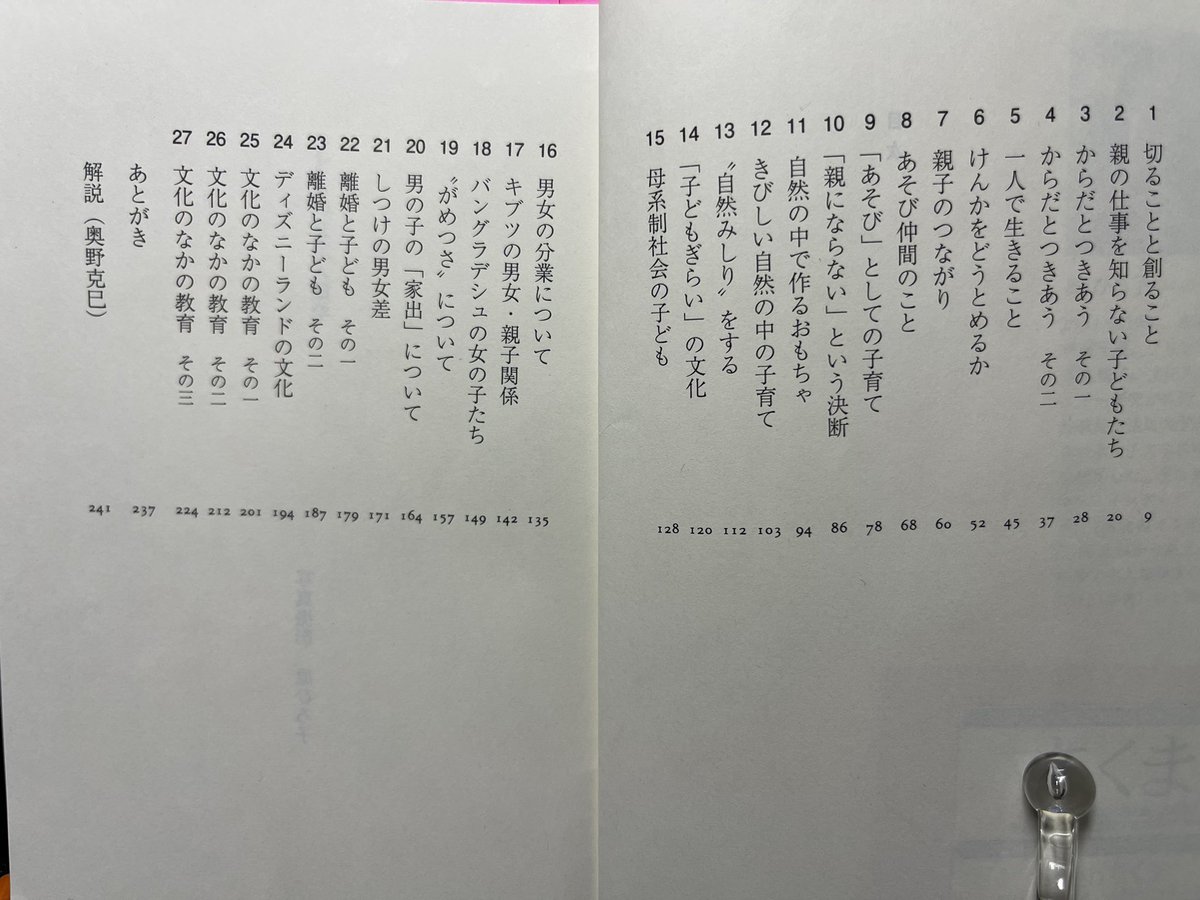 1 切ることと創ること 9
2 親の仕事を知らない子どもたち 20
3 からだとつきあう その一 28
4 からだとつきあう その二 37
5 一人で生きること 45
6 けんかをどうとめるか 52
7 親子のつながり 60
8 あそび仲間のこと 68
9 「あそび」としての子育て 78
10 「親にならない」という決断 86
11 自然の中で作るおもちゃ 94
12 きびしい自然の中の子育て 103
13 〝自然みしり〟をする 112
14 「子どもぎらい」の文化 120
15 母系制社会の子ども 128
16 男女の分業について 135
17 キブツの男女・親子関係 142
18 バングラデシュの女の子たち 149
19 〝がめつさ〟について 157
20 男の子の「家出」について 164
21 しつけの男女差 171
22 離婚と子ども その一 179
23 離婚と子ども その二 187
24 ディズニーランドの文化 194
25 文化のなかの教育 その一 201
26 文化のなかの教育 その二 212
27 文化のなかの教育 その三 224
あとがき 237
解説（奥野克巳） 241